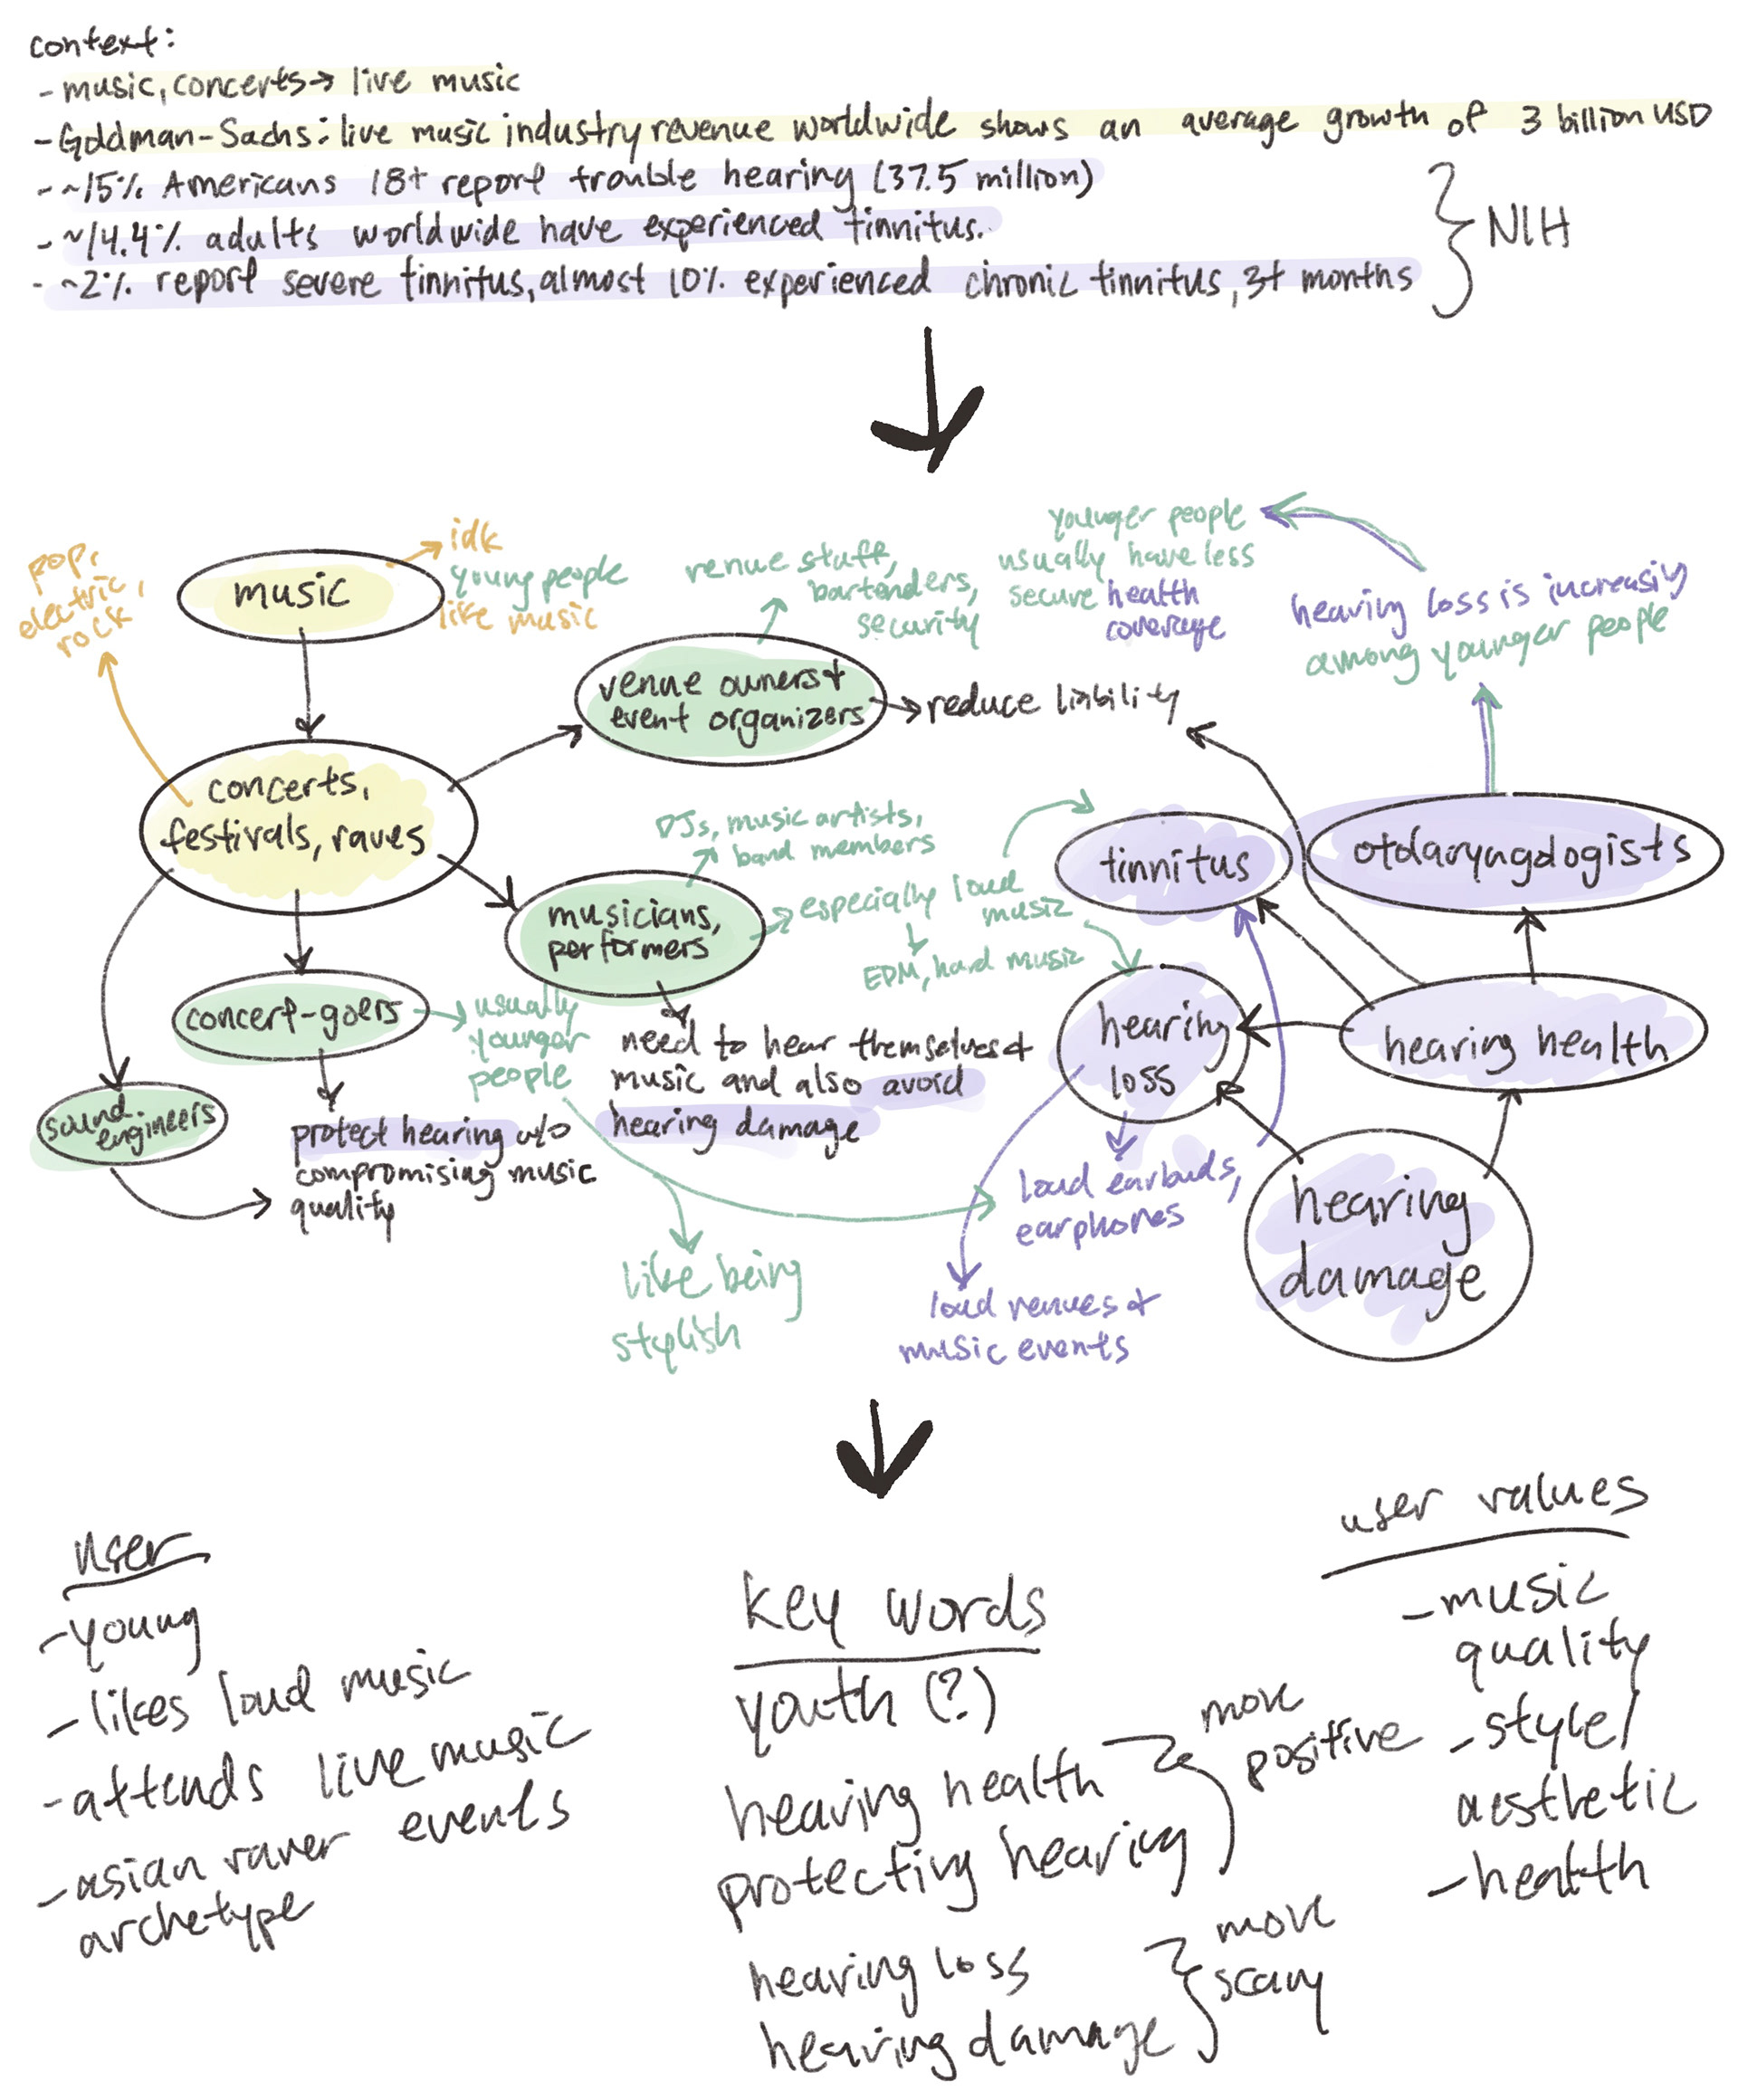 context:
- music, concerts → live music
- Goldman-Sachs: live music industry revenue worldwide shows an average growth of 3 billion USD
- ~15% Americans 18+ report trouble hearing (37.5 million)
- ~14.4% adults worldwide have experienced tinnitus.
- ~2% report severe tinnitus, almost 10% experienced chronic tinnitus, 3+ months
NIH
pop,
electric,
rock
music
idk
young people
like music
venue staff,
bartenders,
security
younger people
usually have less
secure health
coverage
hearing loss is increasily
among younger people
venue owners +
event organizers
reduce liability
concerts,
festivals, raves
DJs, music artists,
band members
musicians,
performers
especially loud
music
EDM, hard music
tinnitus
otolaryngologists
concert-goers
usually
younger
people
need to hear themselves +
music and also avoid
hearing damage
hearing
loss
hearing health
sound
engineers
protect hearing w/o
compromising music
quality
loud earbuds,
earphones
hearing
damage
like being
stylish
loud venues +
music events
user
- young
- likes loud music
- attends live music
events
- asian raver
archetype
key words
youth (?)
hearing health
protecting hearing
more
positive
hearing loss
hearing damage
more
scary
user values
- music
quality
- style/
aesthetic
- health